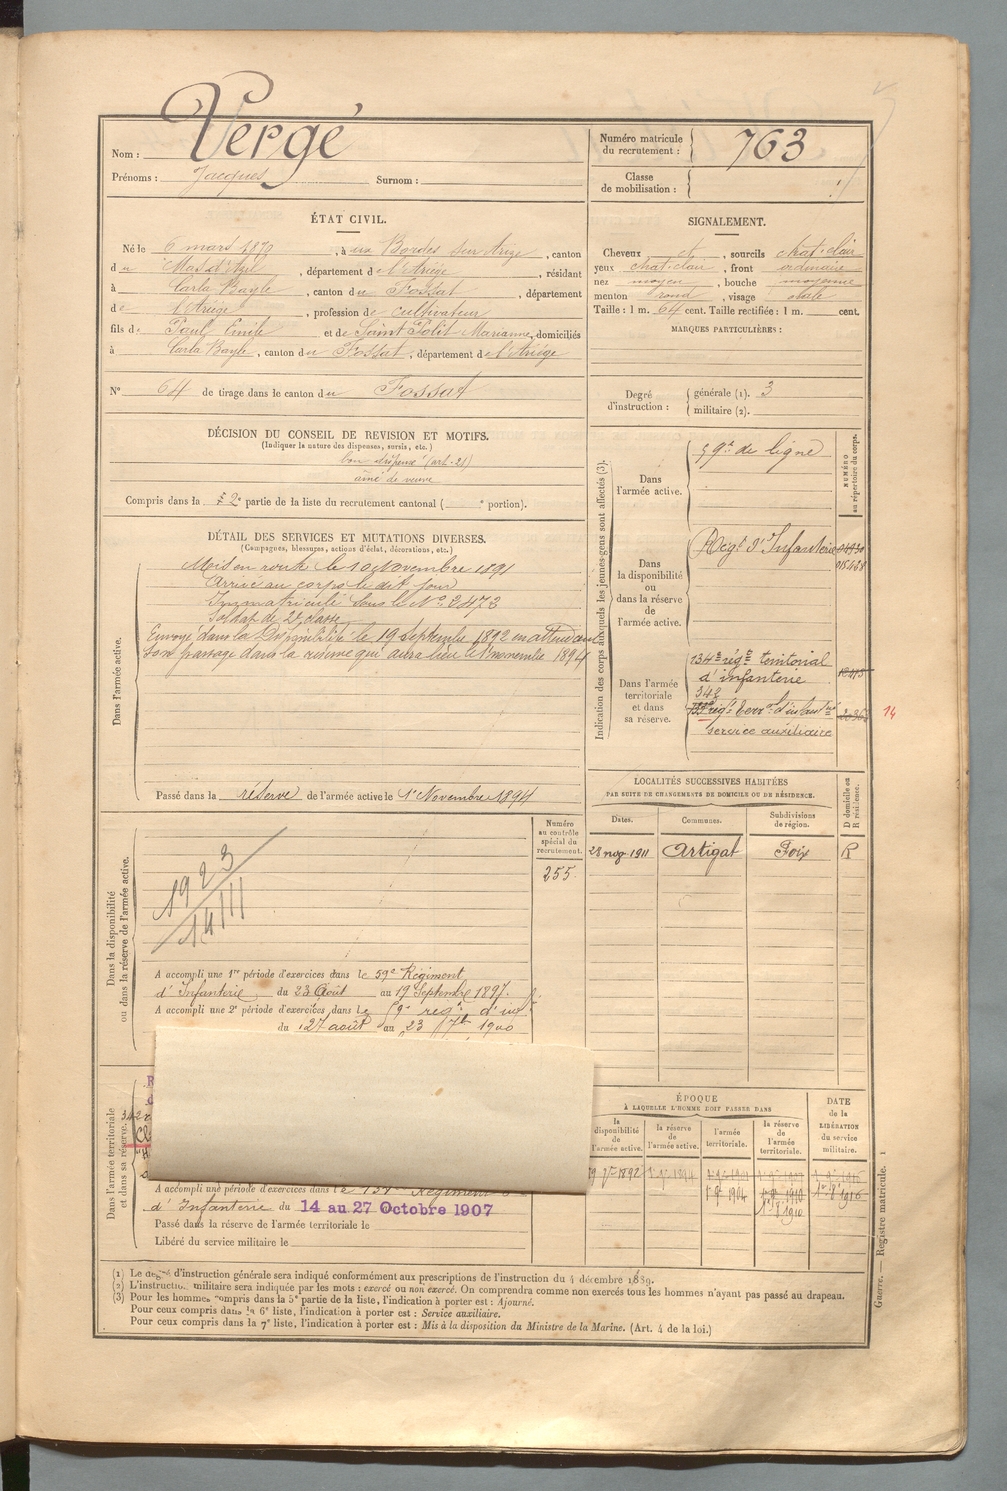 Vergé
Nom :
Prénoms : Jacques Surnom :
Numéro matricule du recrutement : 763
Classe de mobilisation :
ÉTAT CIVIL.
Né le 6 mars 1870, à aux Bordes sur Arize, canton
du Mas d'Azil, département de l'Ariège, résidant
à Carla Bayle, canton du Fossat, département
de l'Ariège, profession de cultivateur
fils de Paul Emile et de Saint Polit Marianne, domiciliés
à Carla Bayle, canton du Fossat, département de l'Ariège
N° 64 de tirage dans le canton du Fossat
SIGNALEMENT.
Cheveux et, sourcils chat. clair
yeux chat. clair, front ordinaire
nez moyen, bouche moyenne
menton rond, visage ovale
Taille : 1 m. 64 cent. Taille rectifiée : 1 m. cent.
MARQUES PARTICULIÈRES :
Degré d'instruction : générale (1). 3
militaire (2).
DÉCISION DU CONSEIL DE REVISION ET MOTIFS.
(Indiquer la nature des dispenses, sursis, etc.)
bon dispensé (art. 21)
ainé de veuve
Compris dans la 2e partie de la liste du recrutement cantonal ( e portion).
DÉTAIL DES SERVICES ET MUTATIONS DIVERSES.
(Campagnes, blessures, actions d'éclat, décorations, etc.)
Dans l'armée active.
Mis en route le 10 Novembre 1891
Arrivé au corps le dit jour
Immatriculé sous le N° 3473
Soldat de 2e classe
Envoyé dans la Disponibilité le 19 Septembre 1892 en attendant
son passage dans la réserve qui aura lieu le 1er novembre 1894
Passé dans la réserve de l'armée active le 1er Novembre 1894
Indication des corps auxquels les jeunes gens sont affectés (3).
NUMÉRO au répertoire du corps.
Dans l'armée active.
59e de ligne
Dans la disponibilité ou dans la réserve de l'armée active.
Régt d'Infanterie
Dans l'armée territoriale et dans sa réserve.
134e régt territorial
d'infanterie
342
régt terr. d'infanterie
service auxiliaire
14
LOCALITÉS SUCCESSIVES HABITÉES
PAR SUITE DE CHANGEMENTS DE DOMICILE OU DE RÉSIDENCE.
Dates. Communes. Subdivisions de région. D domicile ou R résidence.
28 nov. 1911 Artigat Foix R
Dans la disponibilité ou dans la réserve de l'armée active.
Numéro au contrôle spécial du recrutement.
255
1923
14 III
A accompli une 1re période d'exercices dans le 59e Régiment
d'Infanterie du 23 Août au 19 Septembre 1897.
A accompli une 2e période d'exercices dans le 59e reg. d'inf
du 27 août au 23 7bre 1900
Dans l'armée territoriale et dans sa réserve.
A accompli une période d'exercices dans le 134e Régiment
d'Infanterie du 14 au 27 Octobre 1907
Passé dans la réserve de l'armée territoriale le
Libéré du service militaire le
ÉPOQUE
À LAQUELLE L'HOMME DOIT PASSER DANS
la disponibilité de l'armée active. la réserve de l'armée active. l'armée territoriale. la réserve de l'armée territoriale. DATE de la LIBÉRATION du service militaire.
19 7bre 1892
(1) Le degré d'instruction générale sera indiqué conformément aux prescriptions de l'instruction du 4 décembre 1889.
(2) L'instruction militaire sera indiquée par les mots : exercé ou non exercé. On comprendra comme non exercés tous les hommes n'ayant pas passé au drapeau.
(3) Pour les hommes compris dans la 5e partie de la liste, l'indication à porter est : Ajourné.
Pour ceux compris dans la 6e liste, l'indication à porter est : Service auxiliaire.
Pour ceux compris dans la 7e liste, l'indication à porter est : Mis à la disposition du Ministre de la Marine. (Art. 4 de la loi.)
Guerre. — Registre matricule. 1